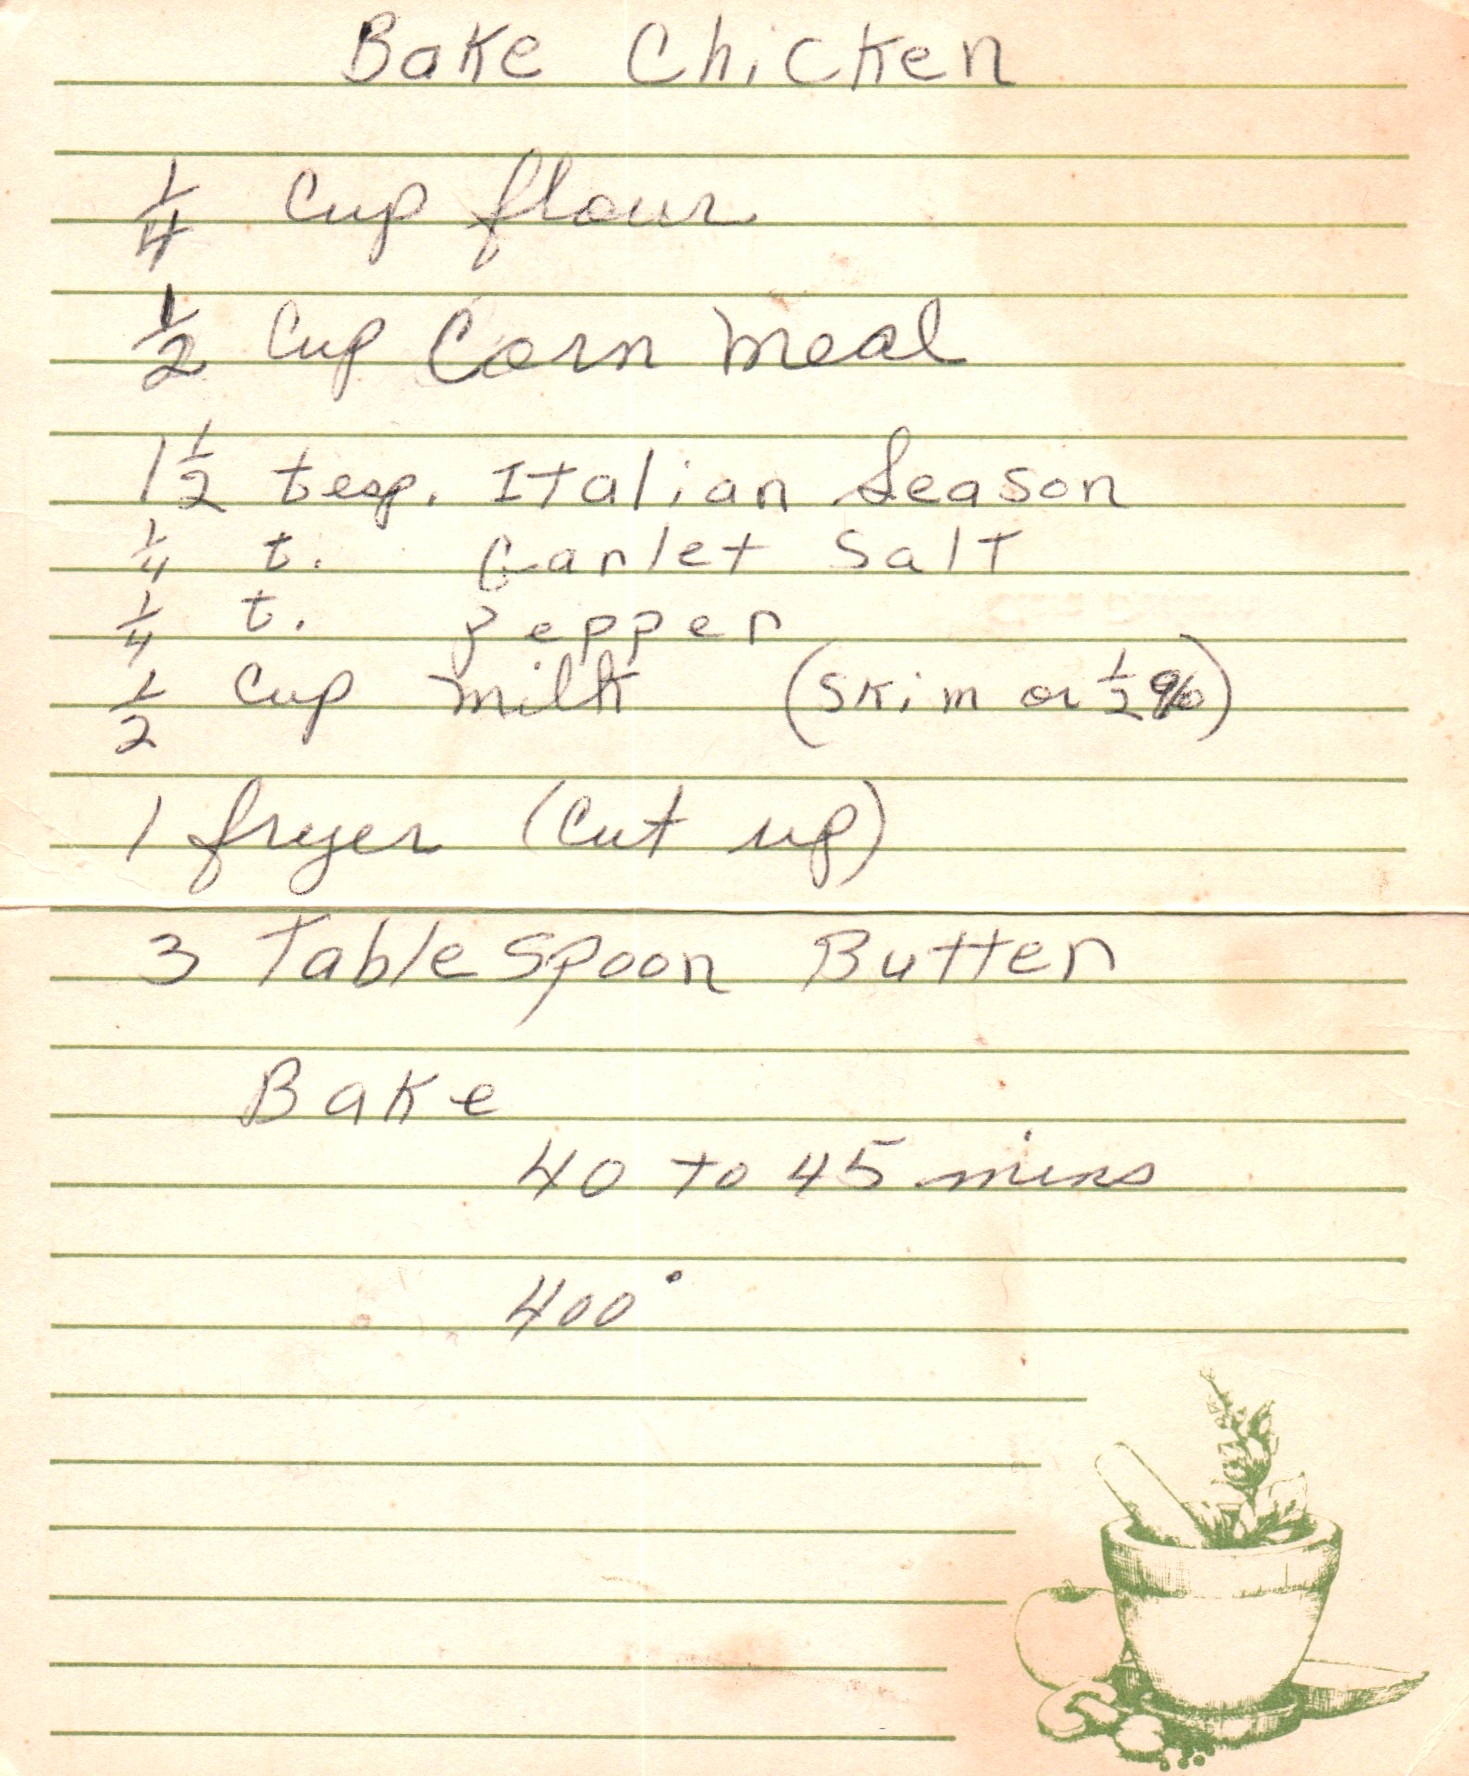 Bake Chicken
1/4 cup flour
1/2 Cup Corn meal
1 1/2 tesp. Italian Season
1/4 t. Garlet Salt
1/4 t. Pepper
1/2 cup milk (Skim or 1/2 %)
1 fryer (Cut up)
3 TableSpoon Butter
Bake
40 to 45 mins
400°